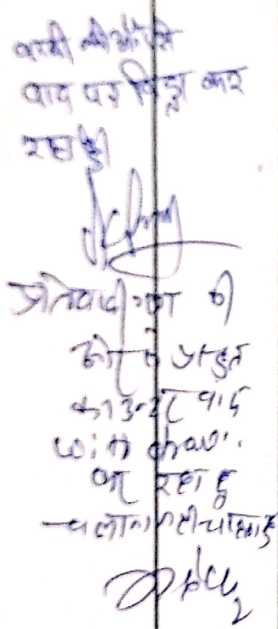 वादी की ओर से
वाद पर विड्रा कर
रहा हूँ
प्रतिवादीगण की
ओर से प्रस्तुत
काउन्टर वाद
withdraw
कर रहा हूँ
चलाना नही चाहता हूँ